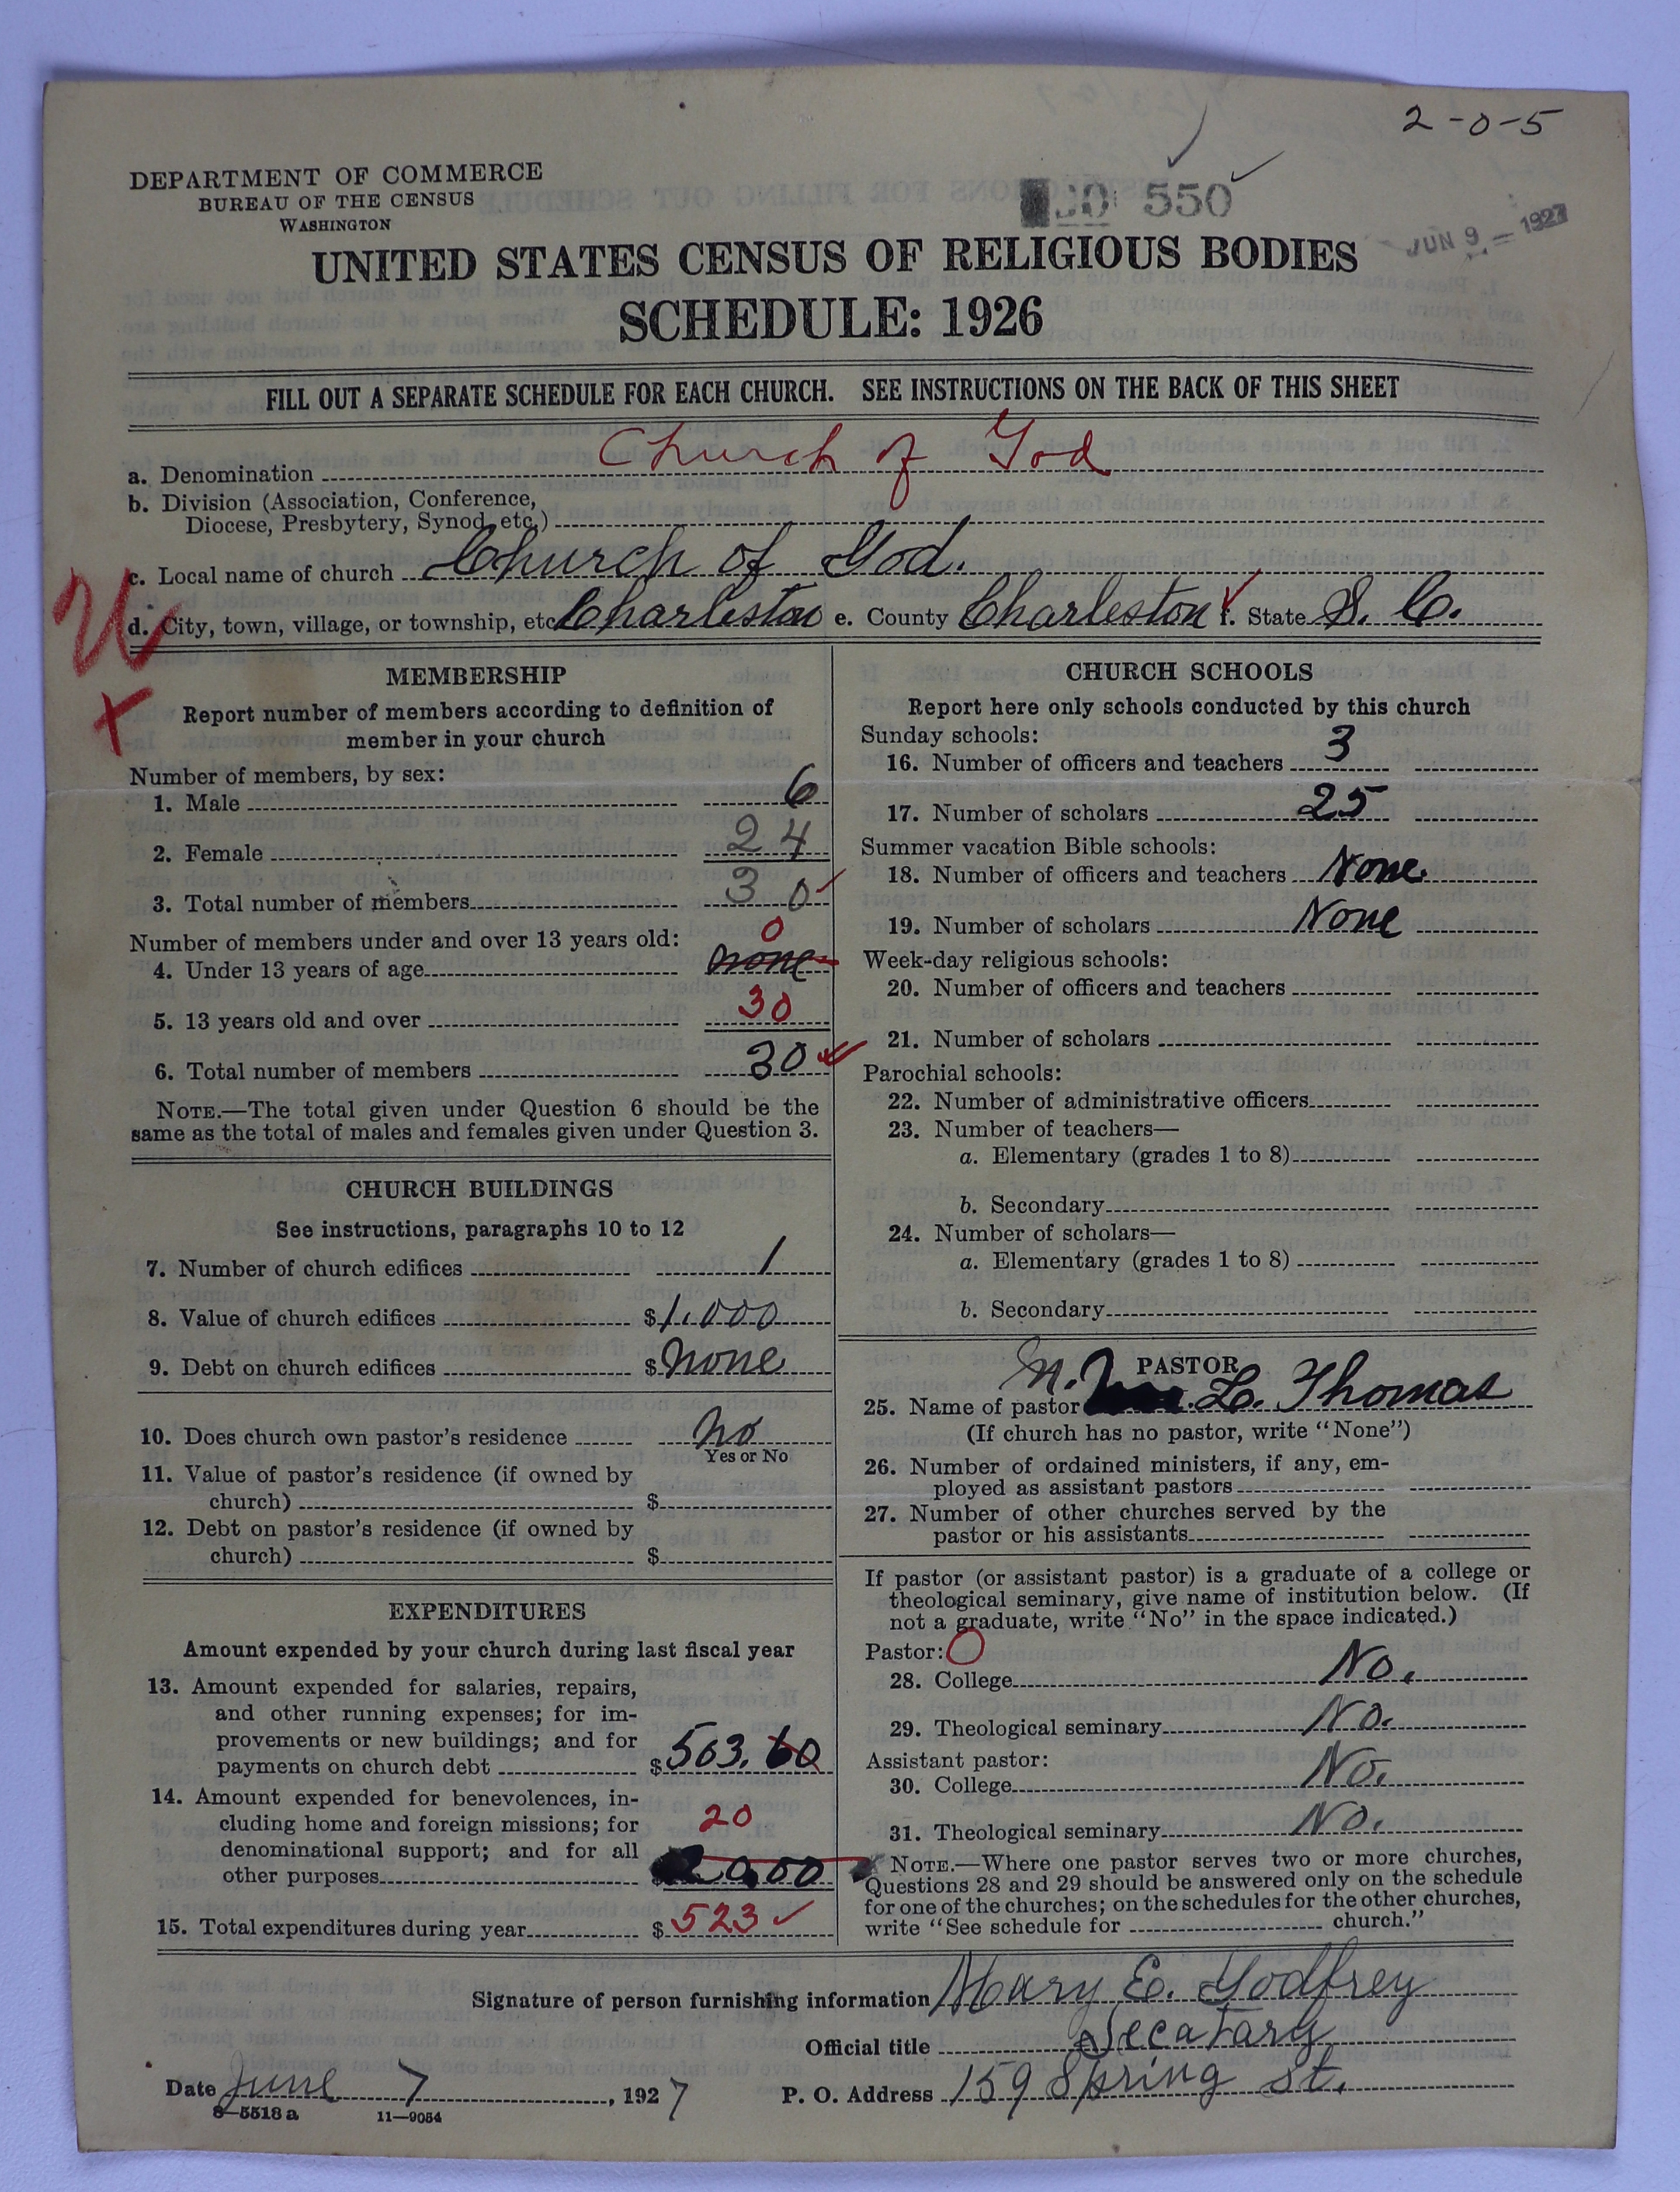 2-0-5
DEPARTMENT OF COMMERCE
BUREAU OF THE CENSUS
WASHINGTON
550
JUN 9 - 1927
UNITED STATES CENSUS OF RELIGIOUS BODIES
SCHEDULE: 1926
FILL OUT A SEPARATE SCHEDULE FOR EACH CHURCH. SEE INSTRUCTIONS ON THE BACK OF THIS SHEET
a. Denomination Church of God
b. Division (Association, Conference,
Diocese, Presbytery, Synod, etc.)
c. Local name of church Church of God.
d. City, town, village, or township, etc. Charleston e. County Charleston f. State S. C.
U
X
MEMBERSHIP
Report number of members according to definition of
member in your church
Number of members, by sex:
1. Male 6
2. Female 24
3. Total number of members 30
Number of members under and over 13 years old: 0
4. Under 13 years of age none
5. 13 years old and over 30
6. Total number of members 30
NOTE.—The total given under Question 6 should be the
same as the total of males and females given under Question 3.
CHURCH BUILDINGS
See instructions, paragraphs 10 to 12
7. Number of church edifices 1
8. Value of church edifices $1,000
9. Debt on church edifices $none
10. Does church own pastor's residence no
Yes or No
11. Value of pastor's residence (if owned by
church) $
12. Debt on pastor's residence (if owned by
church) $
EXPENDITURES
Amount expended by your church during last fiscal year
13. Amount expended for salaries, repairs,
and other running expenses; for im-
provements or new buildings; and for
payments on church debt $503.60
14. Amount expended for benevolences, in-
cluding home and foreign missions; for 20
denominational support; and for all
other purposes $20.00
15. Total expenditures during year $523
CHURCH SCHOOLS
Report here only schools conducted by this church
Sunday schools:
16. Number of officers and teachers 3
17. Number of scholars 25
Summer vacation Bible schools:
18. Number of officers and teachers None.
19. Number of scholars None
Week-day religious schools:
20. Number of officers and teachers
21. Number of scholars
Parochial schools:
22. Number of administrative officers
23. Number of teachers—
a. Elementary (grades 1 to 8)
b. Secondary
24. Number of scholars—
a. Elementary (grades 1 to 8)
b. Secondary
PASTOR
25. Name of pastor N. L. Thomas
(If church has no pastor, write "None")
26. Number of ordained ministers, if any, em-
ployed as assistant pastors
27. Number of other churches served by the
pastor or his assistants
If pastor (or assistant pastor) is a graduate of a college or
theological seminary, give name of institution below. (If
not a graduate, write "No" in the space indicated.)
Pastor: O
28. College No.
29. Theological seminary No.
Assistant pastor:
30. College No.
31. Theological seminary No.
NOTE.—Where one pastor serves two or more churches,
Questions 28 and 29 should be answered only on the schedule
for one of the churches; on the schedules for the other churches,
write "See schedule for church."
Signature of person furnishing information Mary E. Godfrey
Official title Secatary
Date June 7, 1927 P. O. Address 159 Spring St.
8-5518 a 11-9054